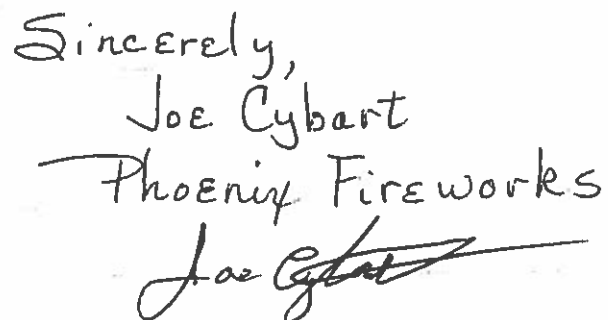 Sincerely,
Joe Cybart
Phoenix Fireworks
Joe Cybart